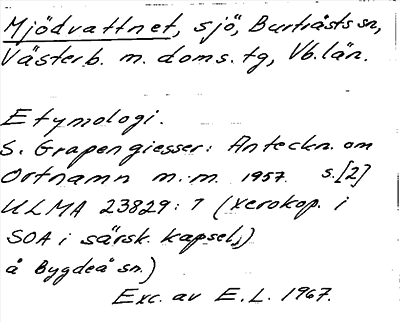 Mjödvattnet, sjö, Burträsks sn,
Västerb. m. doms.tg, Vb.län.
Etymologi.
S. Grapengiesser: Anteckn. om
Ortnamn m.m. 1957. s.[2]
ULMA 23829:7 (xerokop. i
SOA i särsk. kapsel,)
å Bygdeå sn.)
Exc. av E.L. 1967.